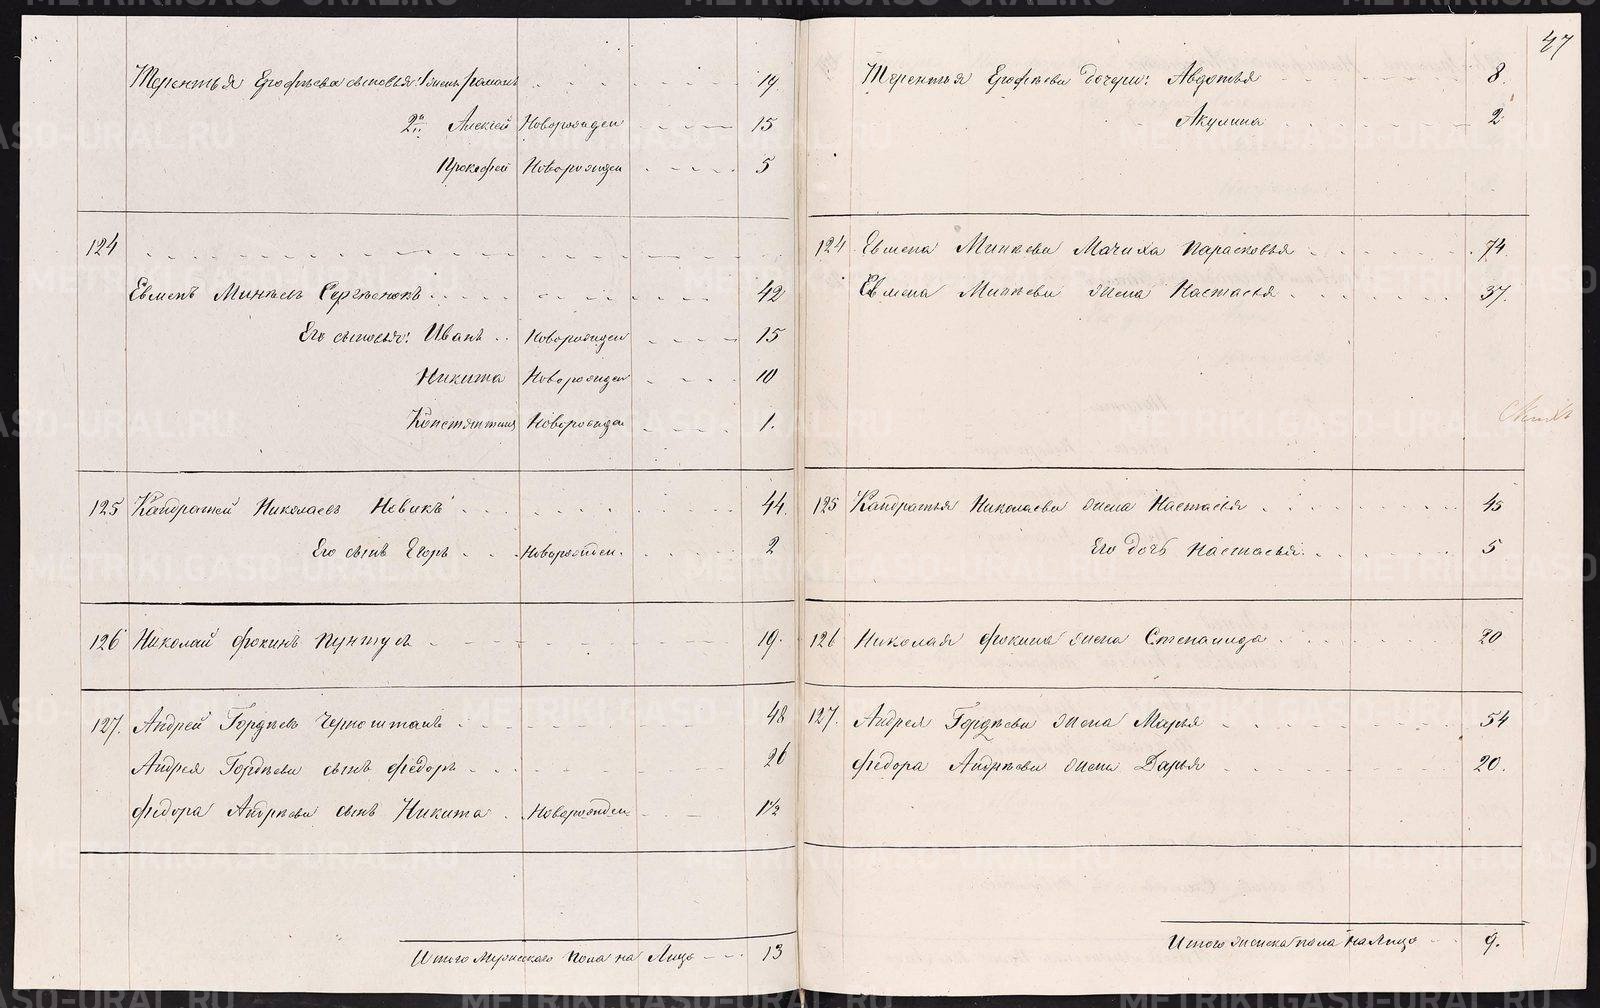 47
Терентья Ерофѣева сыновья: 1. Романъ 19.
2й Алексей Новорожден 15
Прокофей Новорожден 5
124
Евменъ Минѣевъ Сергѣенокъ 42
Его сыновья: Иванъ Новорожден 15
Никита Новорожден 10
Констянтинъ Новорожден 1.
125 Кандратей Николаевъ Новикъ 44.
Его сынъ Егоръ Новорожден. 2
126 Николай Фокинъ Пунтусъ 19.
127. Андрей Гордѣевъ Черноштанъ 48
Андрея Гордѣева сынъ Федоръ 26
Федора Андрѣева сынъ Никита Новорожден 1½
Итого Мужескаго пола на Лицо 13
Терентья Ерофѣева дочери: Авдотья 8.
Акулина 2
124 Евмена Минѣева Мачиха Парасковья 74.
Евмена Минѣева жена Настасья 37.
125 Кандратья Николаева жена Настасья 45
Его дочь Настасья. 5
126 Николая Фокина жена Степанида 20
127. Андрея Гордѣева жена Марья 54
Федора Андрѣева жена Дарья 20.
Итого женска пола на Лицо 9.
METRIKI.GASO-URAL.RU